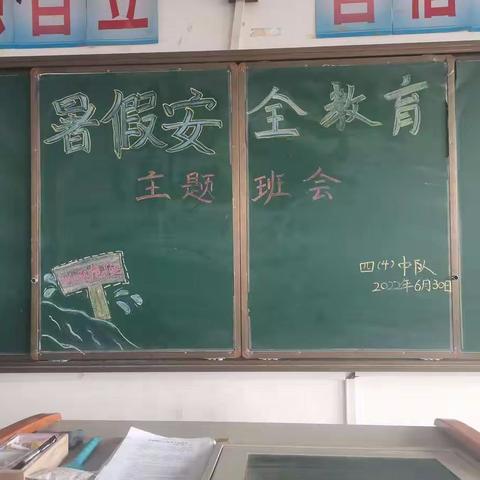 自立
自信
暑假安全教育
主题班会
四(4)中队
2022年6月30日